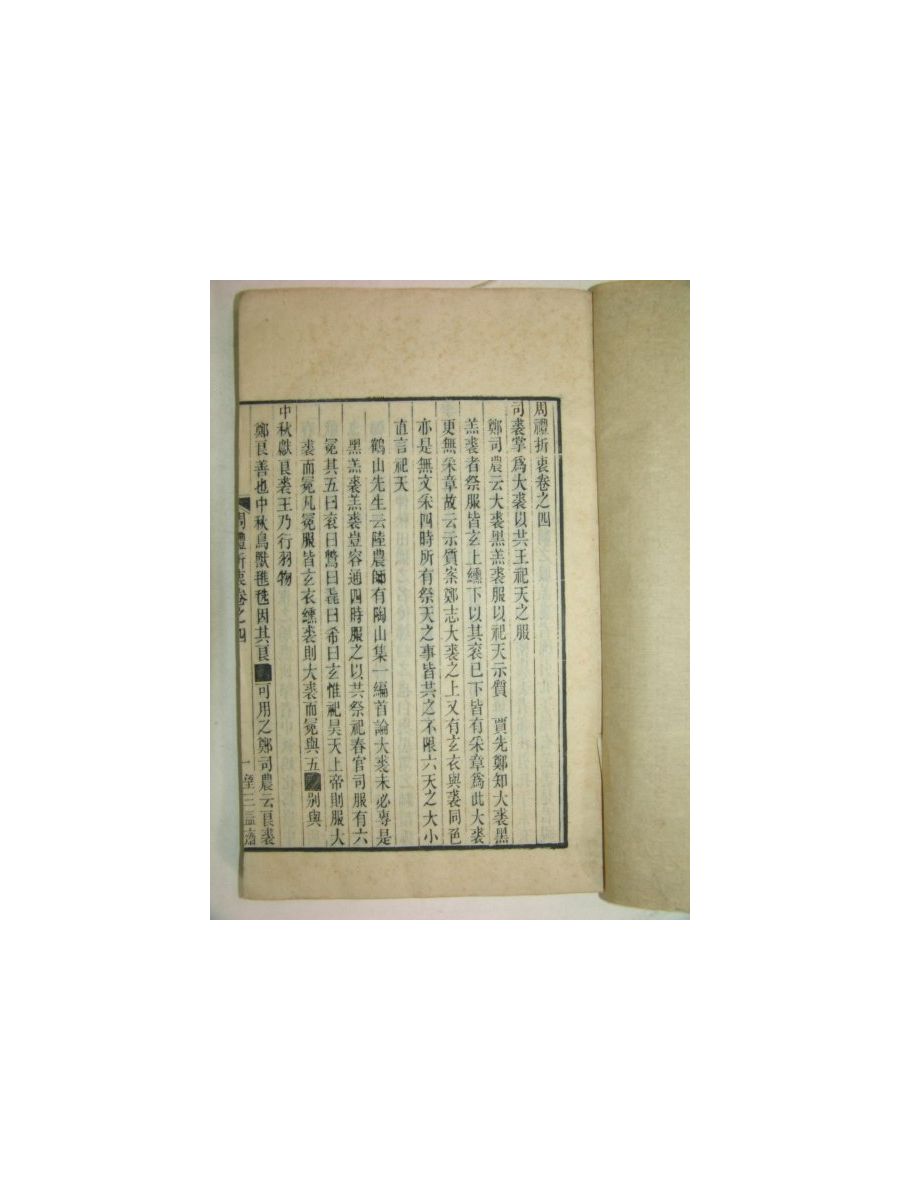 周禮折衷卷之四
司裘掌爲大裘以共王祀天之服
鄭司農云大裘黑羔裘服以祀天示質 賈先鄭知大裘黑
羔裘者祭服皆玄上纁下以其衮已下皆有采章爲此大裘
更無采章故云示質案鄭志大裘之上又有玄衣與裘同色
亦是無文采四時所有祭天之事皆共之不限六天之大小
直言祀天
鶴山先生云陸農師有陶山集一編首論大裘未必專是
黑羔裘羔裘豈容通四時服之以共祭祀春官司服有六
冕其五曰衮曰鷩曰毳曰希曰玄惟祀昊天上帝則服大
裘而冕凡冕服皆玄衣纁裳則大裘而冕與五 别與
中秋獻良裘王乃行羽物
鄭良善也中秋鳥獸毨因其良 可用之鄭司農云良裘
周禮折衷卷之四 一